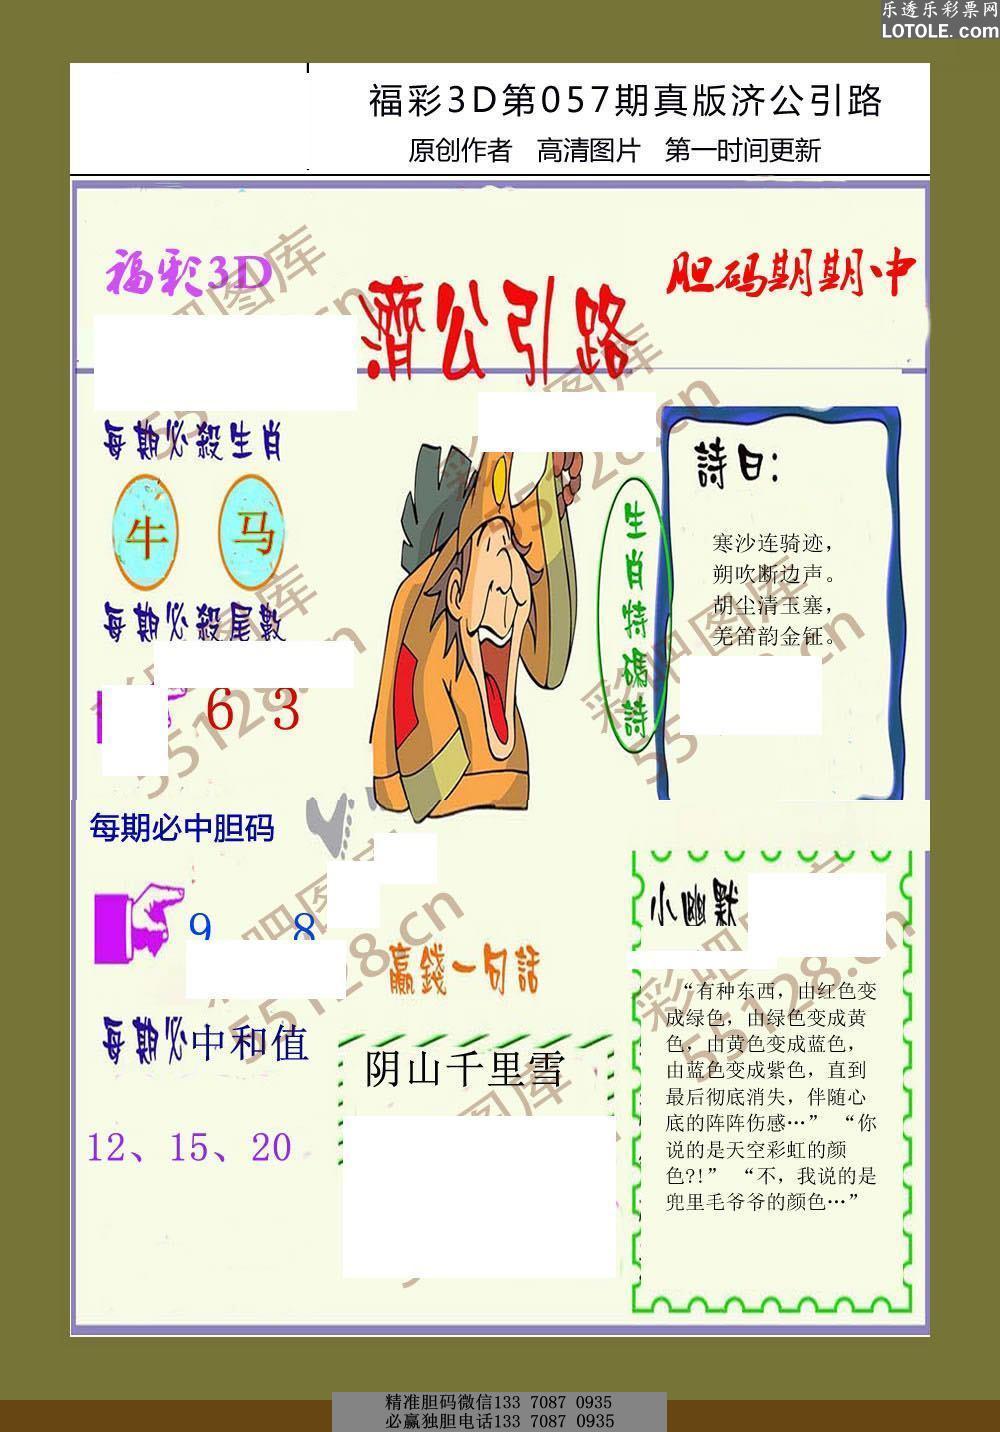 乐透乐彩票网
LOTOLE.com
福彩3D第057期真版济公引路
原创作者 高清图片 第一时间更新
福彩3D
濟公引路
胆码期期中
每期必殺生肖
牛 马
每期必殺尾數
6 3
生肖特碼詩
詩曰:
寒沙连骑迹,
朔吹断边声。
胡尘清玉塞,
羌笛韵金钲。
每期必中胆码
9 8
每期必中和值
12、15、20
贏錢一句話
阴山千里雪
小幽默
“有种东西, 由红色变
成绿色, 由绿色变成黄
色, 由黄色变成蓝色,
由蓝色变成紫色, 直到
最后彻底消失, 伴随心
底的阵阵伤感…” “你
说的是天空彩虹的颜
色?!” “不, 我说的是
兜里毛爷爷的颜色…”
彩吧图库
55128.cn
彩吧图库
55128.cn
彩吧图库
55128.cn
精准胆码微信133 7087 0935
必赢独胆电话133 7087 0935